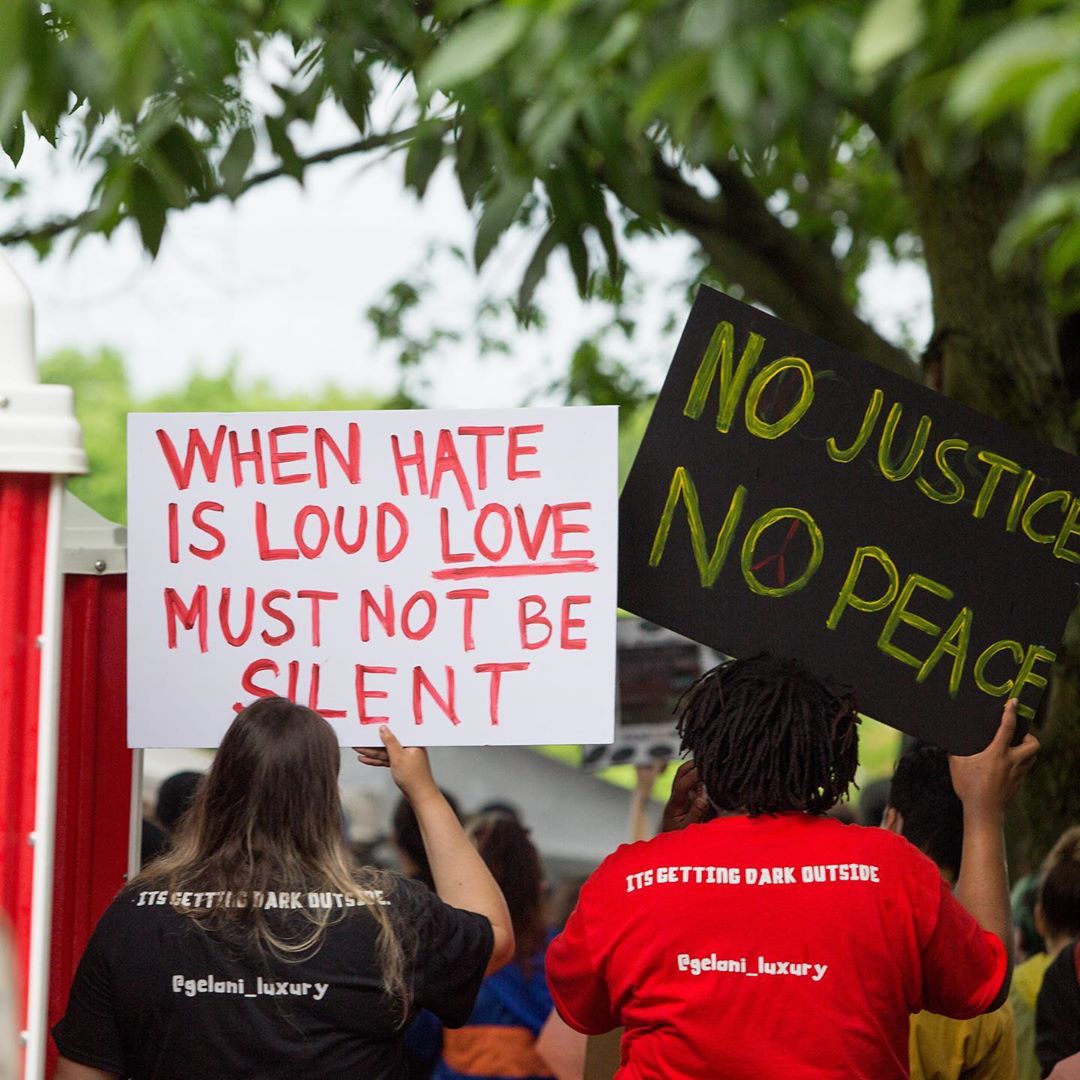 WHEN HATE
IS LOUD LOVE
MUST NOT BE
SILENT
NO JUSTICE
NO PEACE
ITS GETTING DARK OUTSIDE.
@gelani_luxury
ITS GETTING DARK OUTSIDE
@gelani_luxury